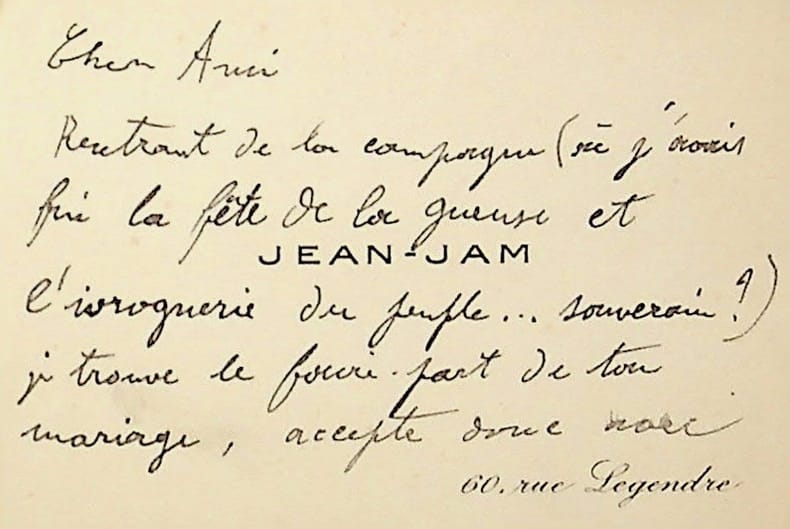 Cher Ami
Rentrant de la campagne (où j'avais
fui la fête de la gueuse et
JEAN-JAM
l'ivrognerie du peuple... souverain!)
je trouve le faire-part de ton
mariage, accepte donc
60. rue Legendre